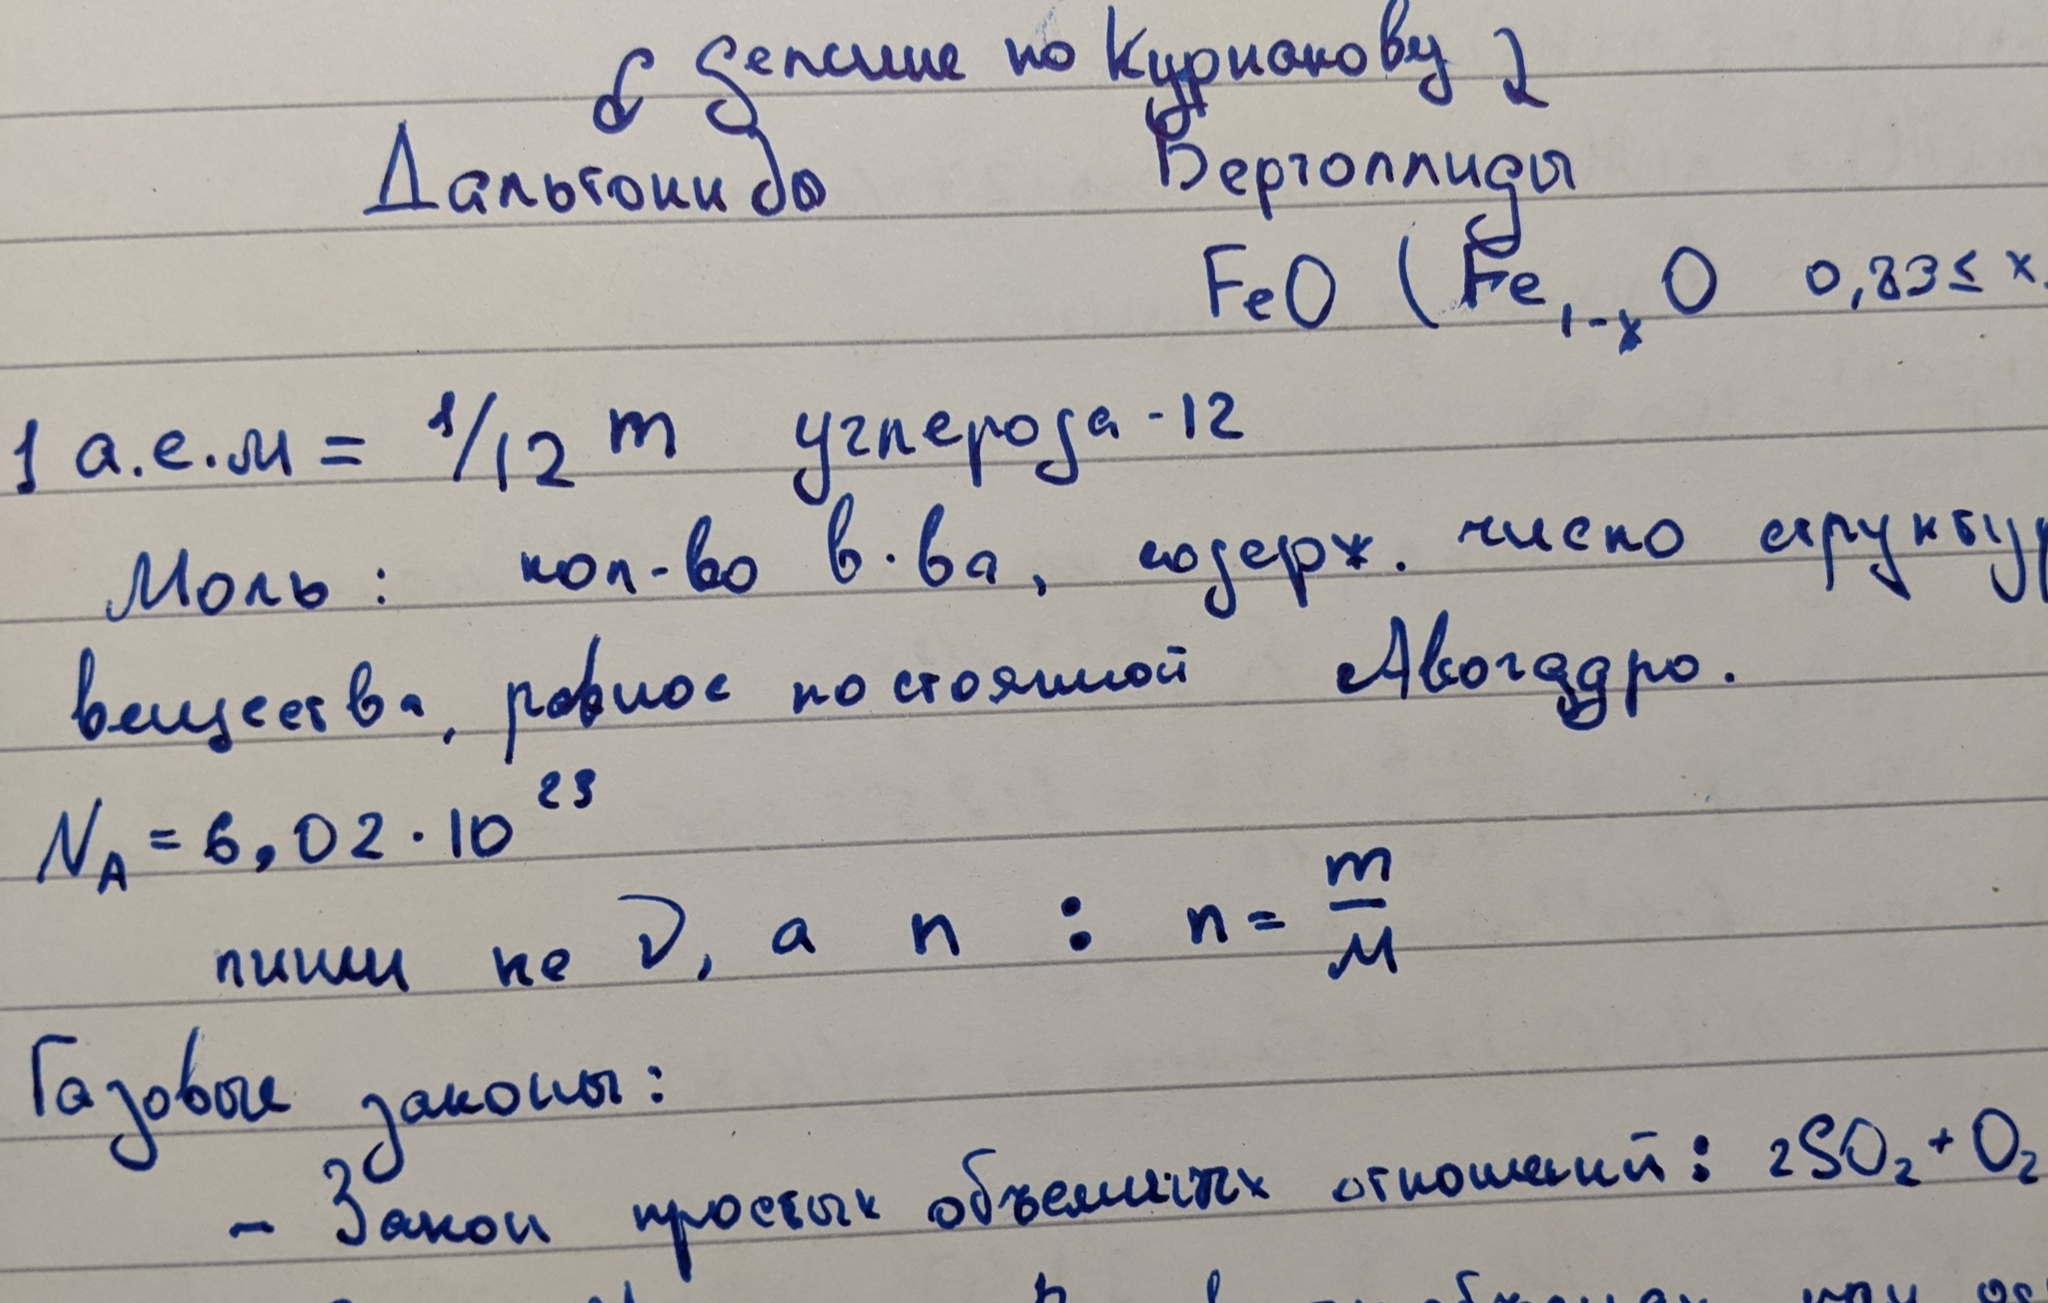 деление по Курнакову
Дальтониды Бертоллиды
FeO (Fe₁₋ₓO 0,83≤ x
1 а.е.м = 1/12 m углерода-12
Моль: кол-во в-ва, содерж. число структур
вещества, равное постоянной Авогадро.
N_A = 6,02·10²³
пиши не ν, а n : n = m/M
Газовые законы:
- Закон простых объемных отношений: 2SO₂ + O₂